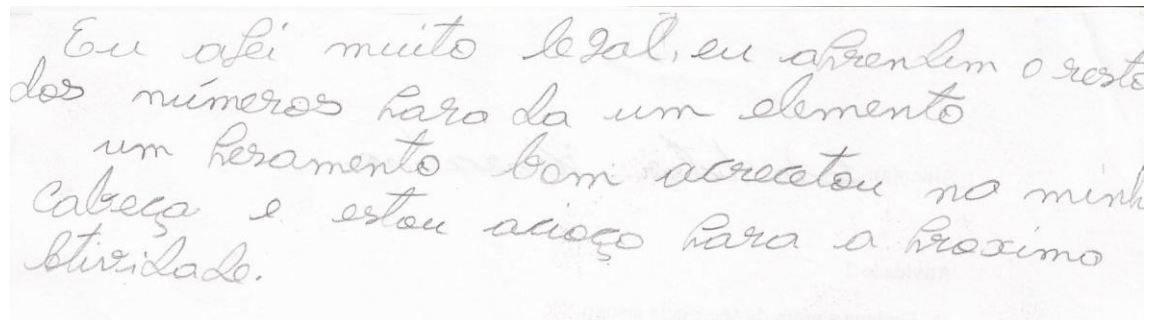 Eu afei muito legal, eu aprendim o resto
dos números para da um elemento
um pesamento bom acrecetou na minh
cabeça e estou acioço para a proximo
atividade.